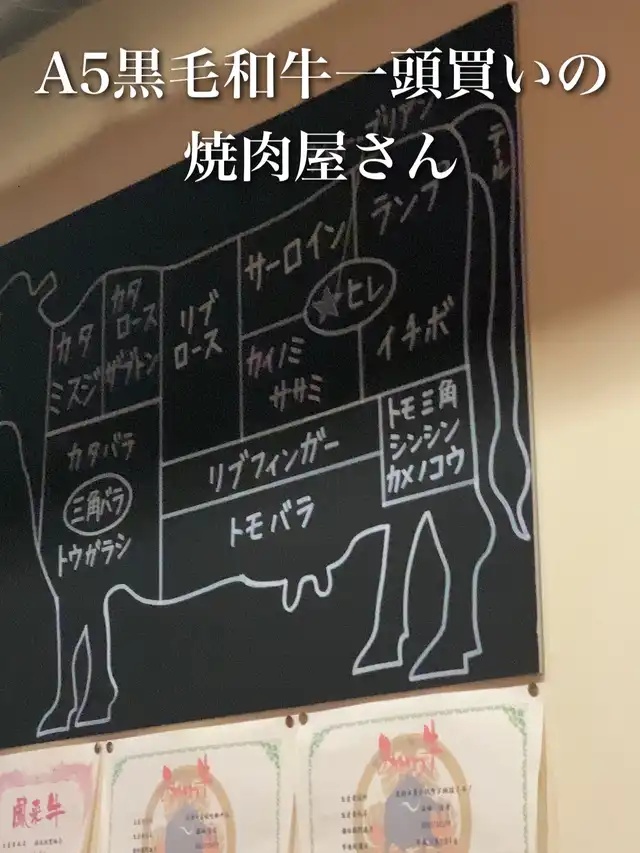 A5黒毛和牛一頭買いの
焼肉屋さん
ブリアン
テール
ランプ
サーロイン
★ヒレ
カタ
ロース
ザブトン
カタ
ミスジ
リブ
ロース
カイノミ
ササミ
イチボ
トモ三角
シンシン
カメノコウ
カタバラ
三角バラ
トウガラシ
リブフィンガー
トモバラ